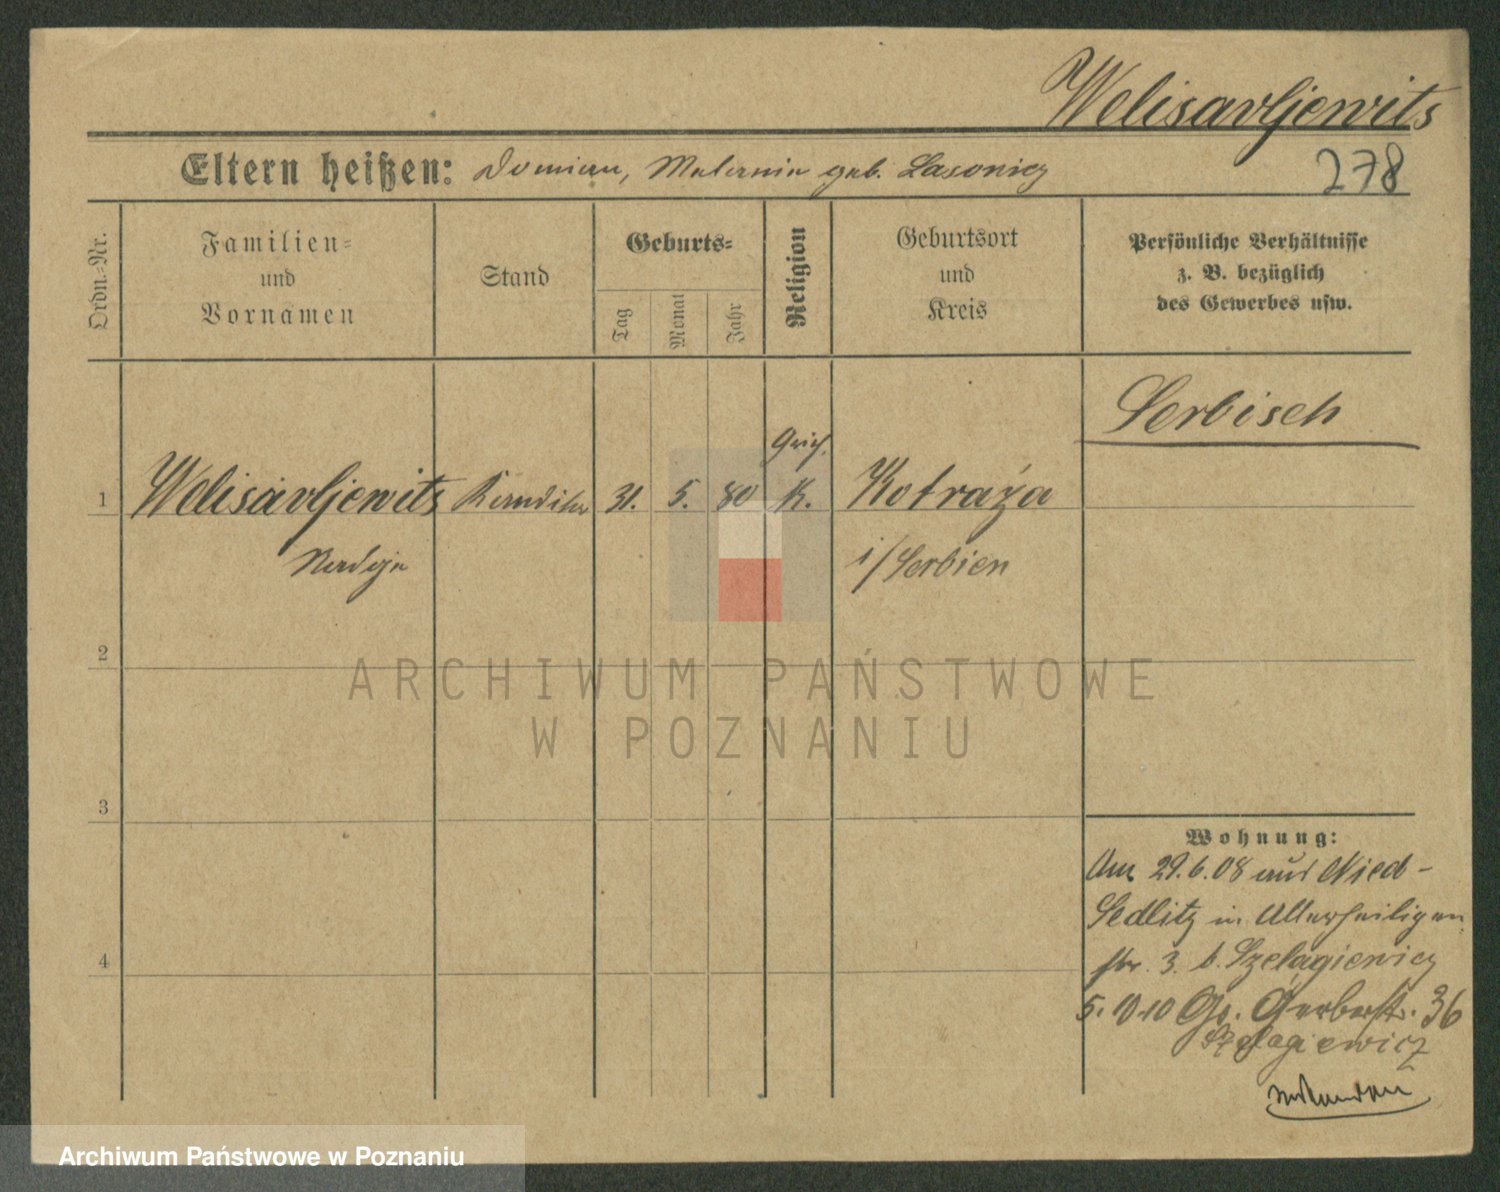 Welisavljewits
Eltern heißen: Domian, Melernia geb. Lasonicz
278
Ordn.=Nr.
Familien=
und
Vornamen
Stand
Geburts=
Tag
Monat
Jahr
Religion
Geburtsort
und
Kreis
Persönliche Verhältnisse
z. B. bezüglich
des Gewerbes usw.
Serbisch
Griech.
1 Welisavljewits Konditor 31. 5. 80 K. Kotraža
i/Serbien
2
ARCHIWUM PAŃSTWOWE
W POZNANIU
3
Wohnung:
Am 29.6.08 aus Nied-
Sedlitz in Allerheiligen
str. 3. b. Szelągiewicz
5. 10.10 Gr. Gerberstr. 36
Szelągiewicz
4
Archiwum Państwowe w Poznaniu